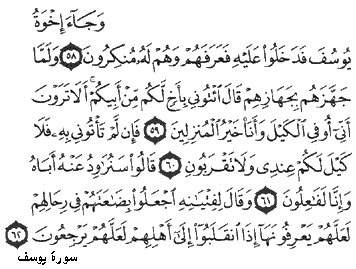 وَجَآءَ إِخْوَةُ
يُوسُفَ فَدَخَلُوا۟ عَلَيْهِ فَعَرَفَهُمْ وَهُمْ لَهُۥ مُنكِرُونَ ٥٨ وَلَمَّا
جَهَّزَهُم بِجَهَازِهِمْ قَالَ ٱئْتُونِى بِأَخٍ لَّكُم مِّنْ أَبِيكُمْ ۚ أَلَا تَرَوْنَ
أَنِّىٓ أُوفِى ٱلْكَيْلَ وَأَنَا۠ خَيْرُ ٱلْمُنزِلِينَ ٥٩ فَإِن لَّمْ تَأْتُونِى بِهِۦ فَلَا
كَيْلَ لَكُمْ عِندِى وَلَا تَقْرَبُونِ ٦٠ قَالُوا۟ سَنُرَٰوِدُ عَنْهُ أَبَاهُ
وَإِنَّا لَفَٰعِلُونَ ٦١ وَقَالَ لِفِتْيَٰنِهِ ٱجْعَلُوا۟ بِضَٰعَتَهُمْ فِى رِحَالِهِمْ
لَعَلَّهُمْ يَعْرِفُونَهَآ إِذَا ٱنقَلَبُوٓا۟ إِلَىٰٓ أَهْلِهِمْ لَعَلَّهُمْ يَرْجِعُونَ ٦٢
سورة يوسف